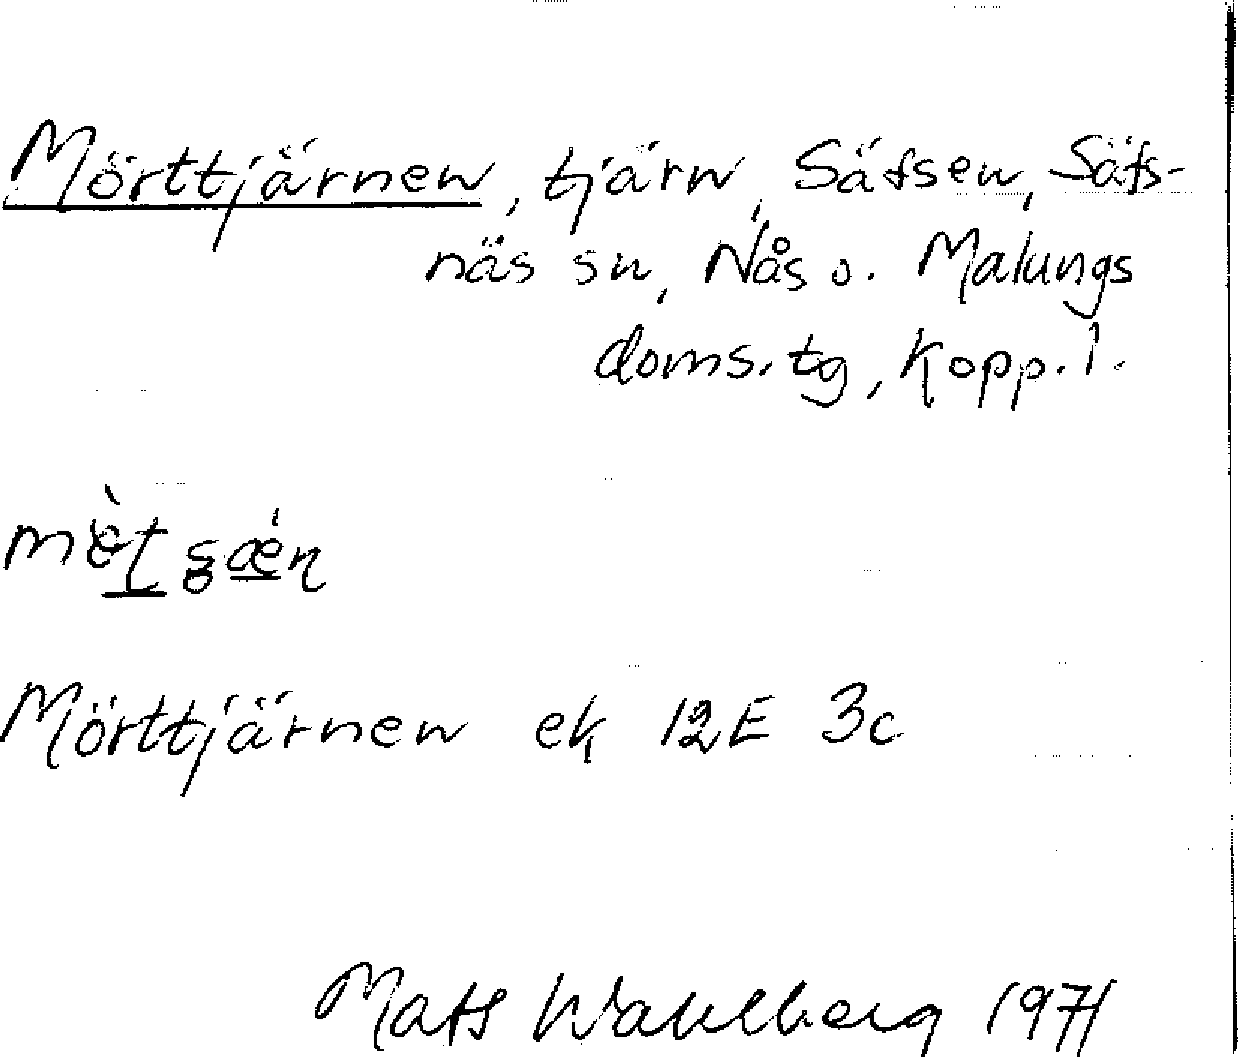 Mörttjärnen, tjärn, Säfsen, Säfs-
näs sn, Nås o. Malungs
doms. tg, Kopp. l.
Mörttjärnen ek 12E 3c
Mats Wahlberg 1971